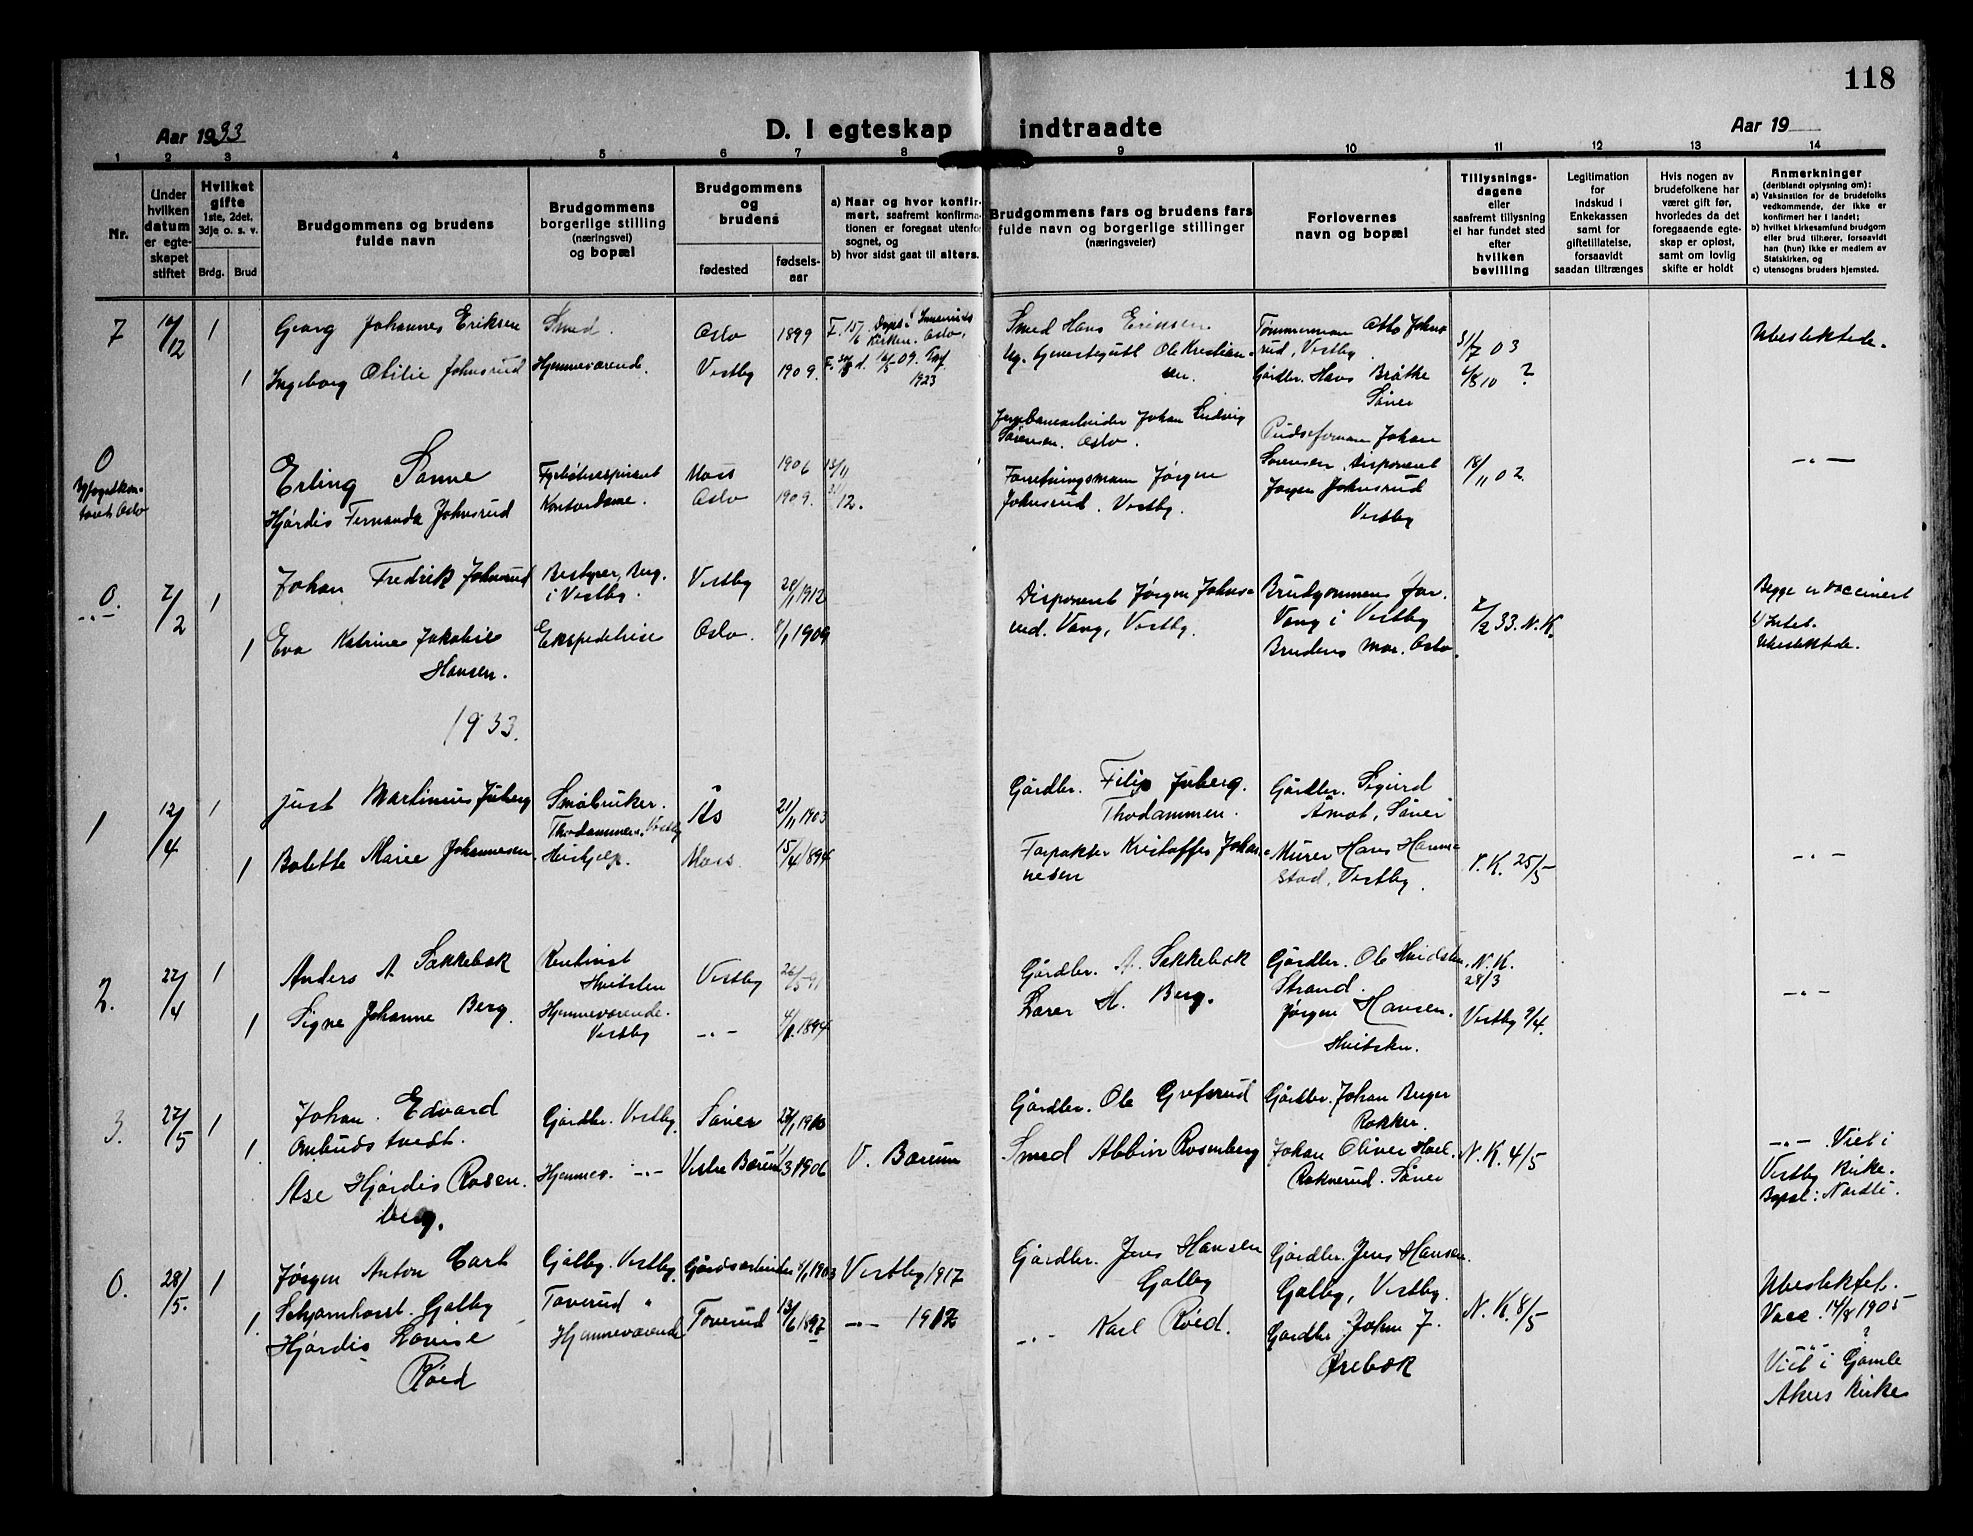 118
Aar 1933
D. I egteskap indtraadte
Aar 19
1 2 3 4 5 6 7 8 9 10 11 12 13 14
Nr.
Under
hvilken
datum
er egte-
skapet
stiftet
Hvilket
gifte
1ste, 2det,
3dje o. s. v.
Brdg. Brud
Brudgommens og brudens
fulde navn
Brudgommens
borgerlige stilling
(næringsvei)
og bopæl
Brudgommens
og
brudens
fødested
fødsels-
aar
a) Naar og hvor konfir-
mert, saafremt konfirma-
tionen er foregaat utenfor
sognet, og
b) hvor sidst gaat til alters.
Brudgommens fars og brudens fars
fulde navn og borgerlige stillinger
(næringsveier)
Forlovernes
navn og bopæl
Tillysnings-
dagene
eller
saafremt tillysning
ei har fundet sted
efter
hvilken
bevilling
Legitimation
for
indskud i
Enkekassen
samt for
giftetillatelse,
forsaavidt
saadan tiltrænges
Hvis nogen av
brudefolkene har
været gift før,
hvorledes da det
foregaaende egte-
skap er opløst,
samt om lovlig
skifte er holdt
Anmerkninger
(deriblandt oplysning om):
a) Vaksinstion for de brudefolks
vedkommende, der ikke er
konfirmert her i landet;
b) hvilket kirkesamfund brudgom
eller brud tilhører, forsaavidt
han (hun) ikke er medlem av
Statskirken, og
c) utensogns bruders hjemsted.
7 10/12 1 Georg Johannes Eriksen Smed. Oslo 1899 F. 15/6 Døpt i
Kirken. Oslo.
Smed Hans Eriksen Tømmermann Otto Johns-
rud, Vestby. 31/7 03 Ubeslektede.
1 Ingeborg Otilie Johnsrud Hjemmeværende. Vestby 1909.
1923
Ole Kristian-
sen. Gårdbr. Hans Bråtke
Såner 6/8 10 ?
0
Byfogetkon-
toret Oslo
Erling Sanne Fyrbøteraspirant Moss 1906 13/11
Jernbanearbeider Johan Ludvig
Sørensen. Oslo. Pudseformann Johan
Sørensen, Disponent 18/11 02. -"-
Hjørdis Fernanda Johnsrud Kontordame. Oslo 1909. 12.
Forretningsmann Jørgen
Johnsrud. Vestby. Jørgen Johnsrud
Vestby
0.
-"- 2/2 1 Johan Fredrik Johnsrud Bestyrer, Berg.
i Vestby. Vestby 28/1 1912
Disponent Jørgen Johns-
rud. Vang, Vestby. Brudgommens far.
Vang i Vestby 2/2 33. N. K. Begge er vaccinert
1 Eva Katrine Jakobsie
Hansen. Ekspeditrise Oslo. 8/1 1909
Brudens mor. Oslo. Ubeslektede.
1933.
1 12/4 1 Just Martinius Juberg Småbruker.
Thodammen. Vestby Ås 21/11 1903
Gårdbr. Filip Juberg.
Thodammen. Gårdbr. Sigurd
Åmot, Såner
1 Bolette Marie Johannesen Hushjelp. Moss 15/4 1894
Forpakter Kristoffer Johan-
nesen Murer Hans Hanne-
stad, Vestby. V. K. 25/5 -"-
2. 22/4 1 Anders A Sækkebæk
Hvitsten Vestby 26/5-91
Gårdbr. A. Sekkebæk Gårdbr. Ole Hvidsten
Strand. N. K.
28/3 -"-
1 Signe Johanne Berg Hjemmeværende.
Vestby -"- 4/9. 1894
Lærer H. Berg. Jørgen Hansen.
Hvitsten. Vestby 9/4.
3. 27/5 1 Johan Edvard
Ombudstvedt. Gårdbr. Vestby. Såner 27/1 1900
Gårdbr. Ole Grefsrud Gårdbr. Johan Berger
1. Åse Hjørdis Rosen-
berg. Hjemmev. -"- Vestre Bærum 1/3 1906 V. Bærum
Smed Albin Rosenberg Johan Oliver Hoel.
Roknerud. Såner N. K. 4/5 -"- Viet i
Vestby Kirke.
Bopæl: Nordli.
0. 28/5. 1 Jørgen Anton Carl
Scharnhorst Galby Galby. Vestby. Gårdsarbeider 8/1 1903 Vestby 1917
Gårdbr. Jens Hansen
Galby Gårdbr. Jens Hansen
Galby, Vestby. N. K. 8/5 Ubeslektet.
Vacc. 14/8 1905
?
1. Hjørdis Lovise
Røed Toverud "
Hjemmeværende Toverud 13/6 1897 -"- 1912
-"- Karl Røed. Gårdbr. Johan J.
Ørebæk Viet i Gamle
Akers Kirke